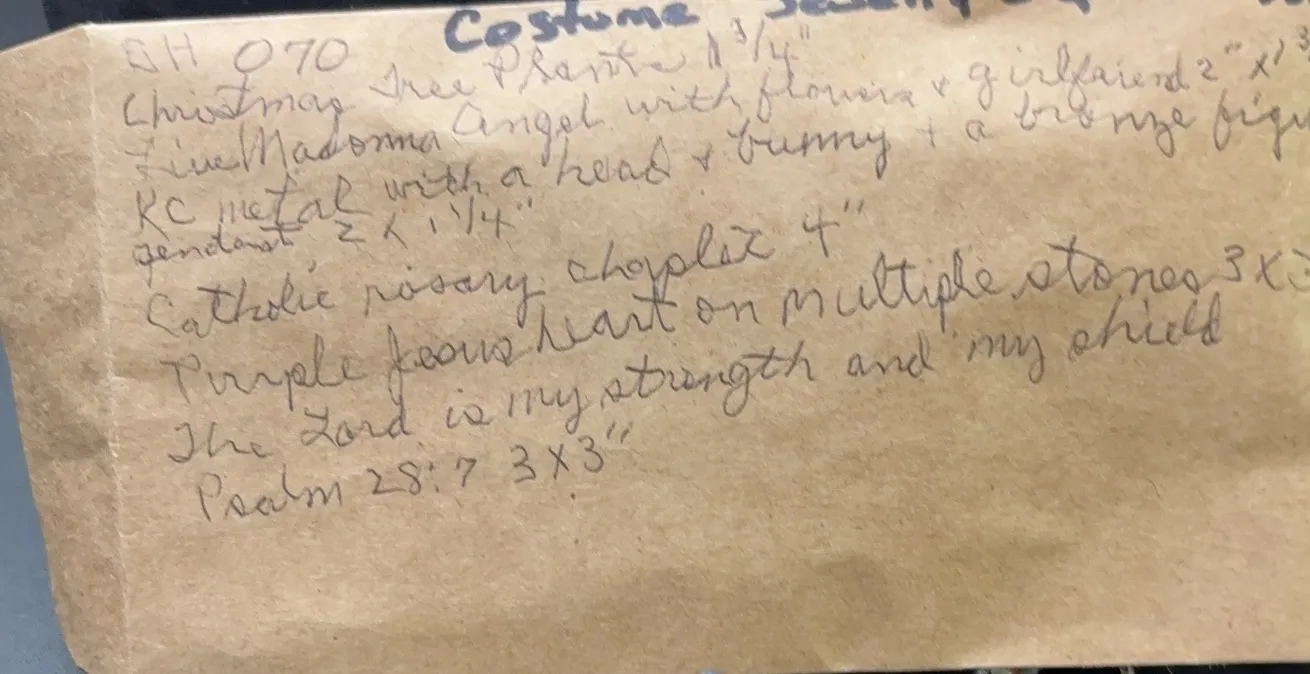 Costume
SH 070
Christmas Tree 1 3/4"
Madonna Angel with flowers & girlfriend 2" x 1 3
KC metal with a head & bunny + a bronze figu
pendant 2 x 1 1/4"
Catholic rosary chaplet 4"
Purple Jesus heart on multiple stones 3 x 3
The Lord is my strength and my shield
Psalm 28:7 3 x 3"